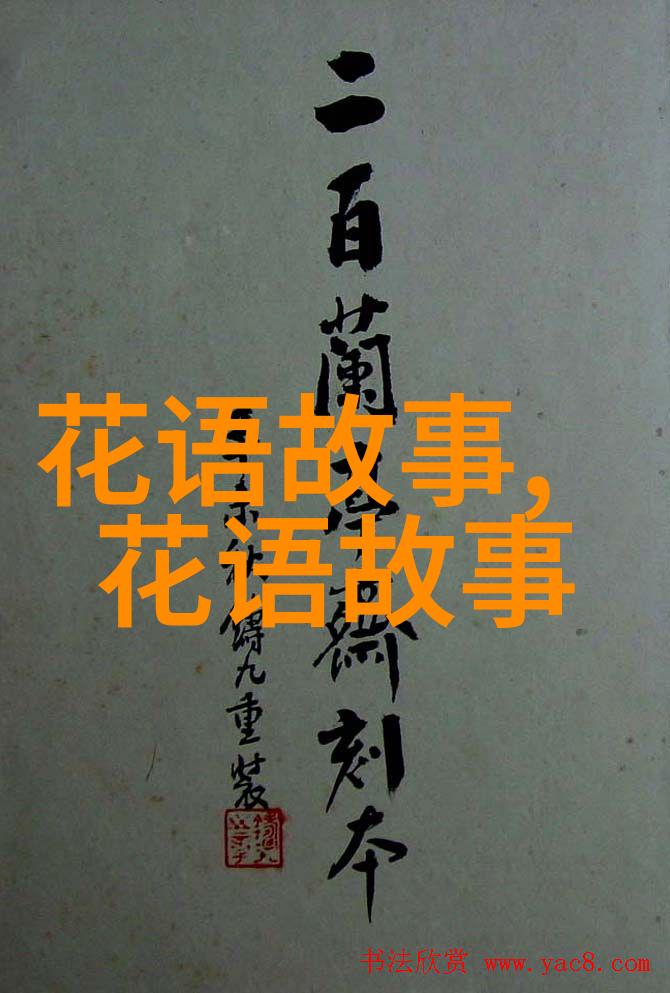 二百蘭亭齋刻本
未秋鑄九重裝
花语故事,
花语故事
书法欣赏 www.yac8.com